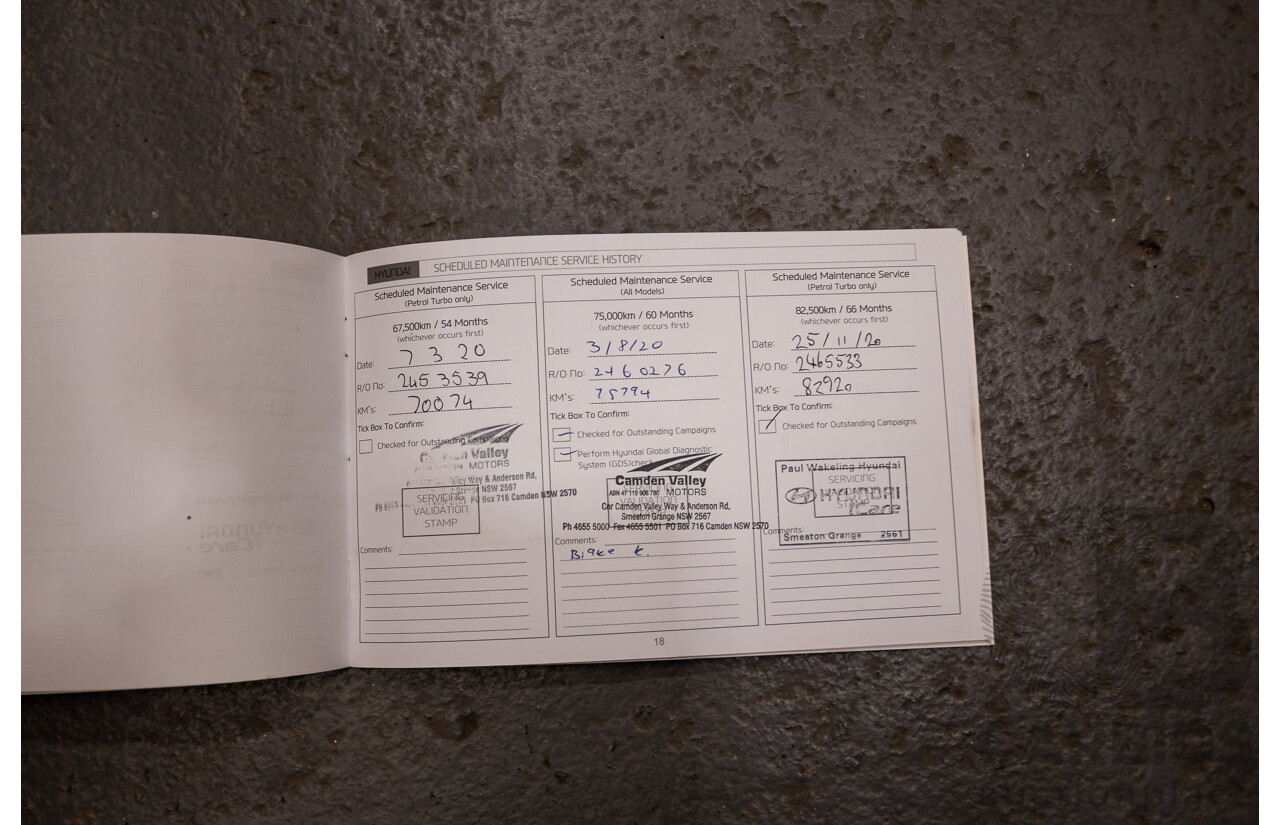 HYUNDAI SCHEDULED MAINTENANCE SERVICE HISTORY
Scheduled Maintenance Service
(Petrol Turbo only)
67,500km / 54 Months
(whichever occurs first)
Date: 7 3 20
R/O No: 245 3539
KM's: 70074
Tick Box To Confirm:
Checked for Outstanding Campaigns
Valley
MOTORS
Valley Way & Anderson Rd,
NSW 2567
PO Box 716 Camden NSW 2570
SERVICING
VALIDATION
STAMP
Comments:
Scheduled Maintenance Service
(All Models)
75,000km / 60 Months
(whichever occurs first)
Date: 3/8/20
R/O No: 2460276
KM's: 75794
Tick Box To Confirm:
Checked for Outstanding Campaigns
Perform Hyundai Global Diagnostic
System (GDS)check
Camden Valley
ABN 47 119 908 780 MOTORS
SERVICING
VALIDATION
STAMP
Cnr Camden Valley Way & Anderson Rd,
Smeaton Grange NSW 2567
Ph 4655 5000 Fax 4655 5501 PO Box 716 Camden NSW 2570
Comments:
Scheduled Maintenance Service
(Petrol Turbo only)
82,500km / 66 Months
(whichever occurs first)
Date: 25/11/20
R/O No: 2465533
KM's: 82920
Tick Box To Confirm:
Checked for Outstanding Campaigns
Paul Wakeling Hyundai
SERVICING
VALIDATION
STAMP
HYUNDAI
iCare
Comments:
Smeaton Grange 2561
18